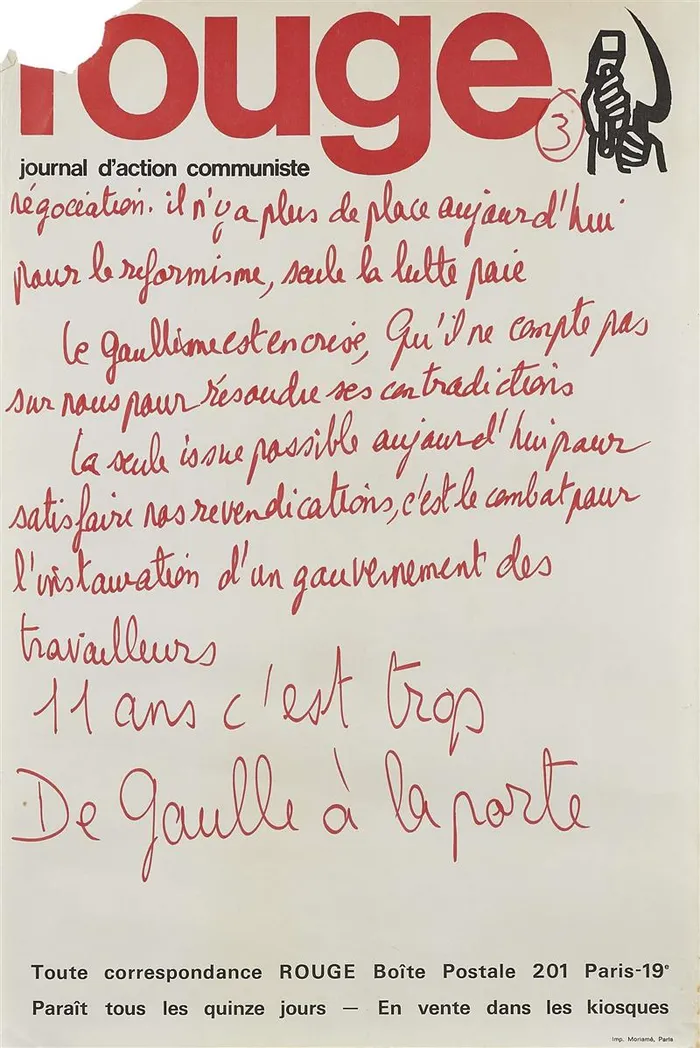 rouge
3
journal d'action communiste
négociation. il n'y a plus de place aujourd'hui
pour le reformisme, seule la lutte paie
Le gaullisme est en crise, Qu'il ne compte pas
sur nous pour résoudre ses contradictions
La seule issue possible aujourd'hui pour
satisfaire nos revendications, c'est le combat pour
l'instauration d'un gouvernement des
travailleurs
11 ans c'est trop
De Gaulle à la porte
Toute correspondance ROUGE Boîte Postale 201 Paris-19e
Paraît tous les quinze jours — En vente dans les kiosques
Imp. Moriamé, Paris